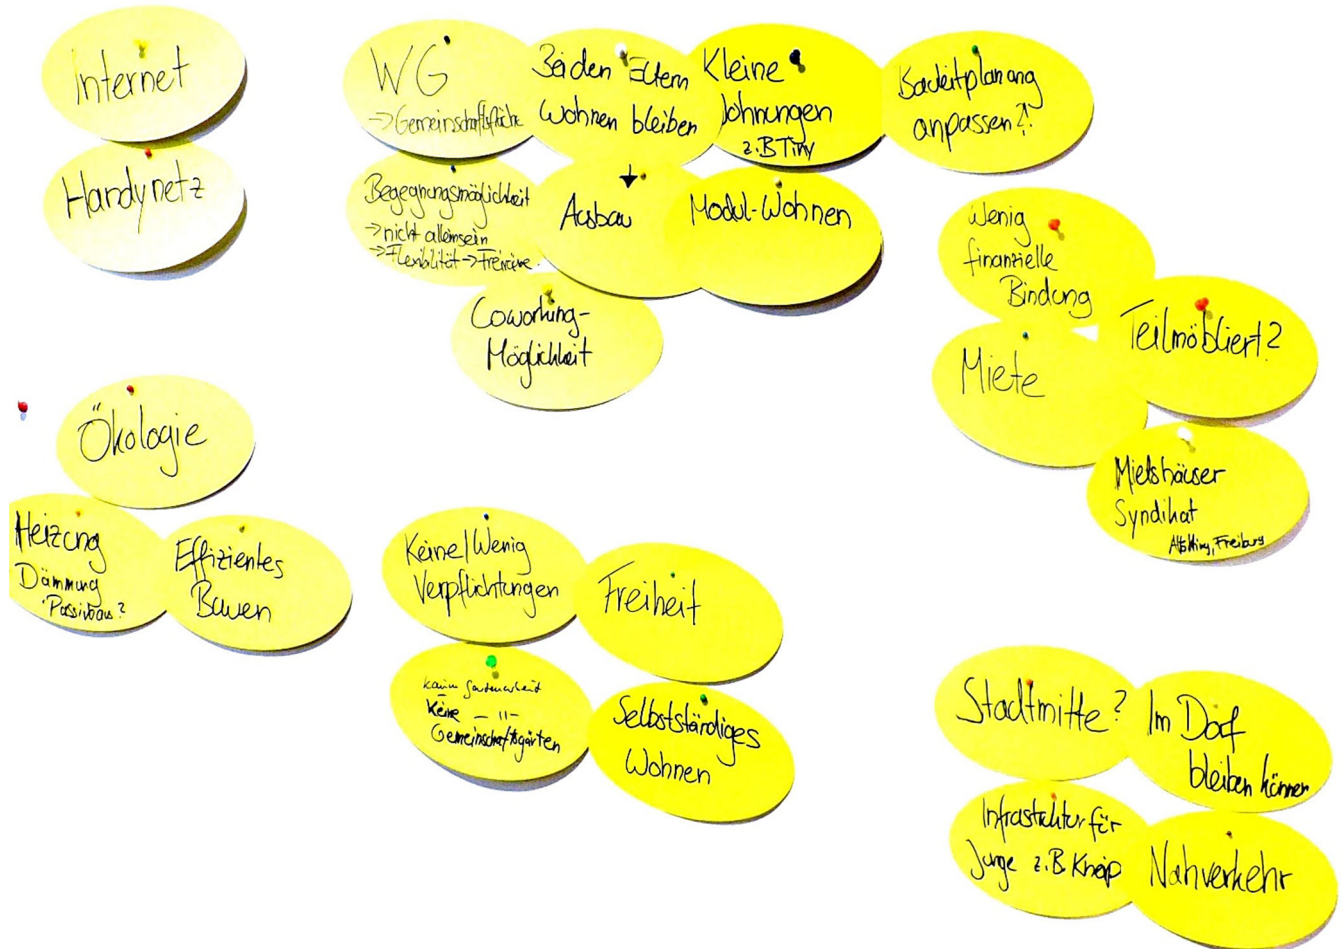 Internet
Handynetz
WG
-> Gemeinschaftsfläche
Bei den Eltern
wohnen bleiben
Kleine
Wohnungen
z.B Tiny
anpassen?!
Begegnungsmöglichkeit
-> nicht alleinsein
-> Flexibilität -> Freiräume
Ausbau
Modul-Wohnen
Coworking-
Möglichkeit
Wenig
finanzielle
Bindung
Teilmöbliert?
Miete
Mietshäuser
Syndikat
Freiburg
Ökologie
Heizung
Dämmung
Effizientes
Bauen
Keine/Wenig
Verpflichtungen
Freiheit
kaum Gartenarbeit
Keine - " -
Gemeinschaftsgärten
Selbstständiges
Wohnen
Stadtmitte?
Im Dorf
bleiben können
Infrastruktur für
Junge z.B. Kneip
Nahverkehr